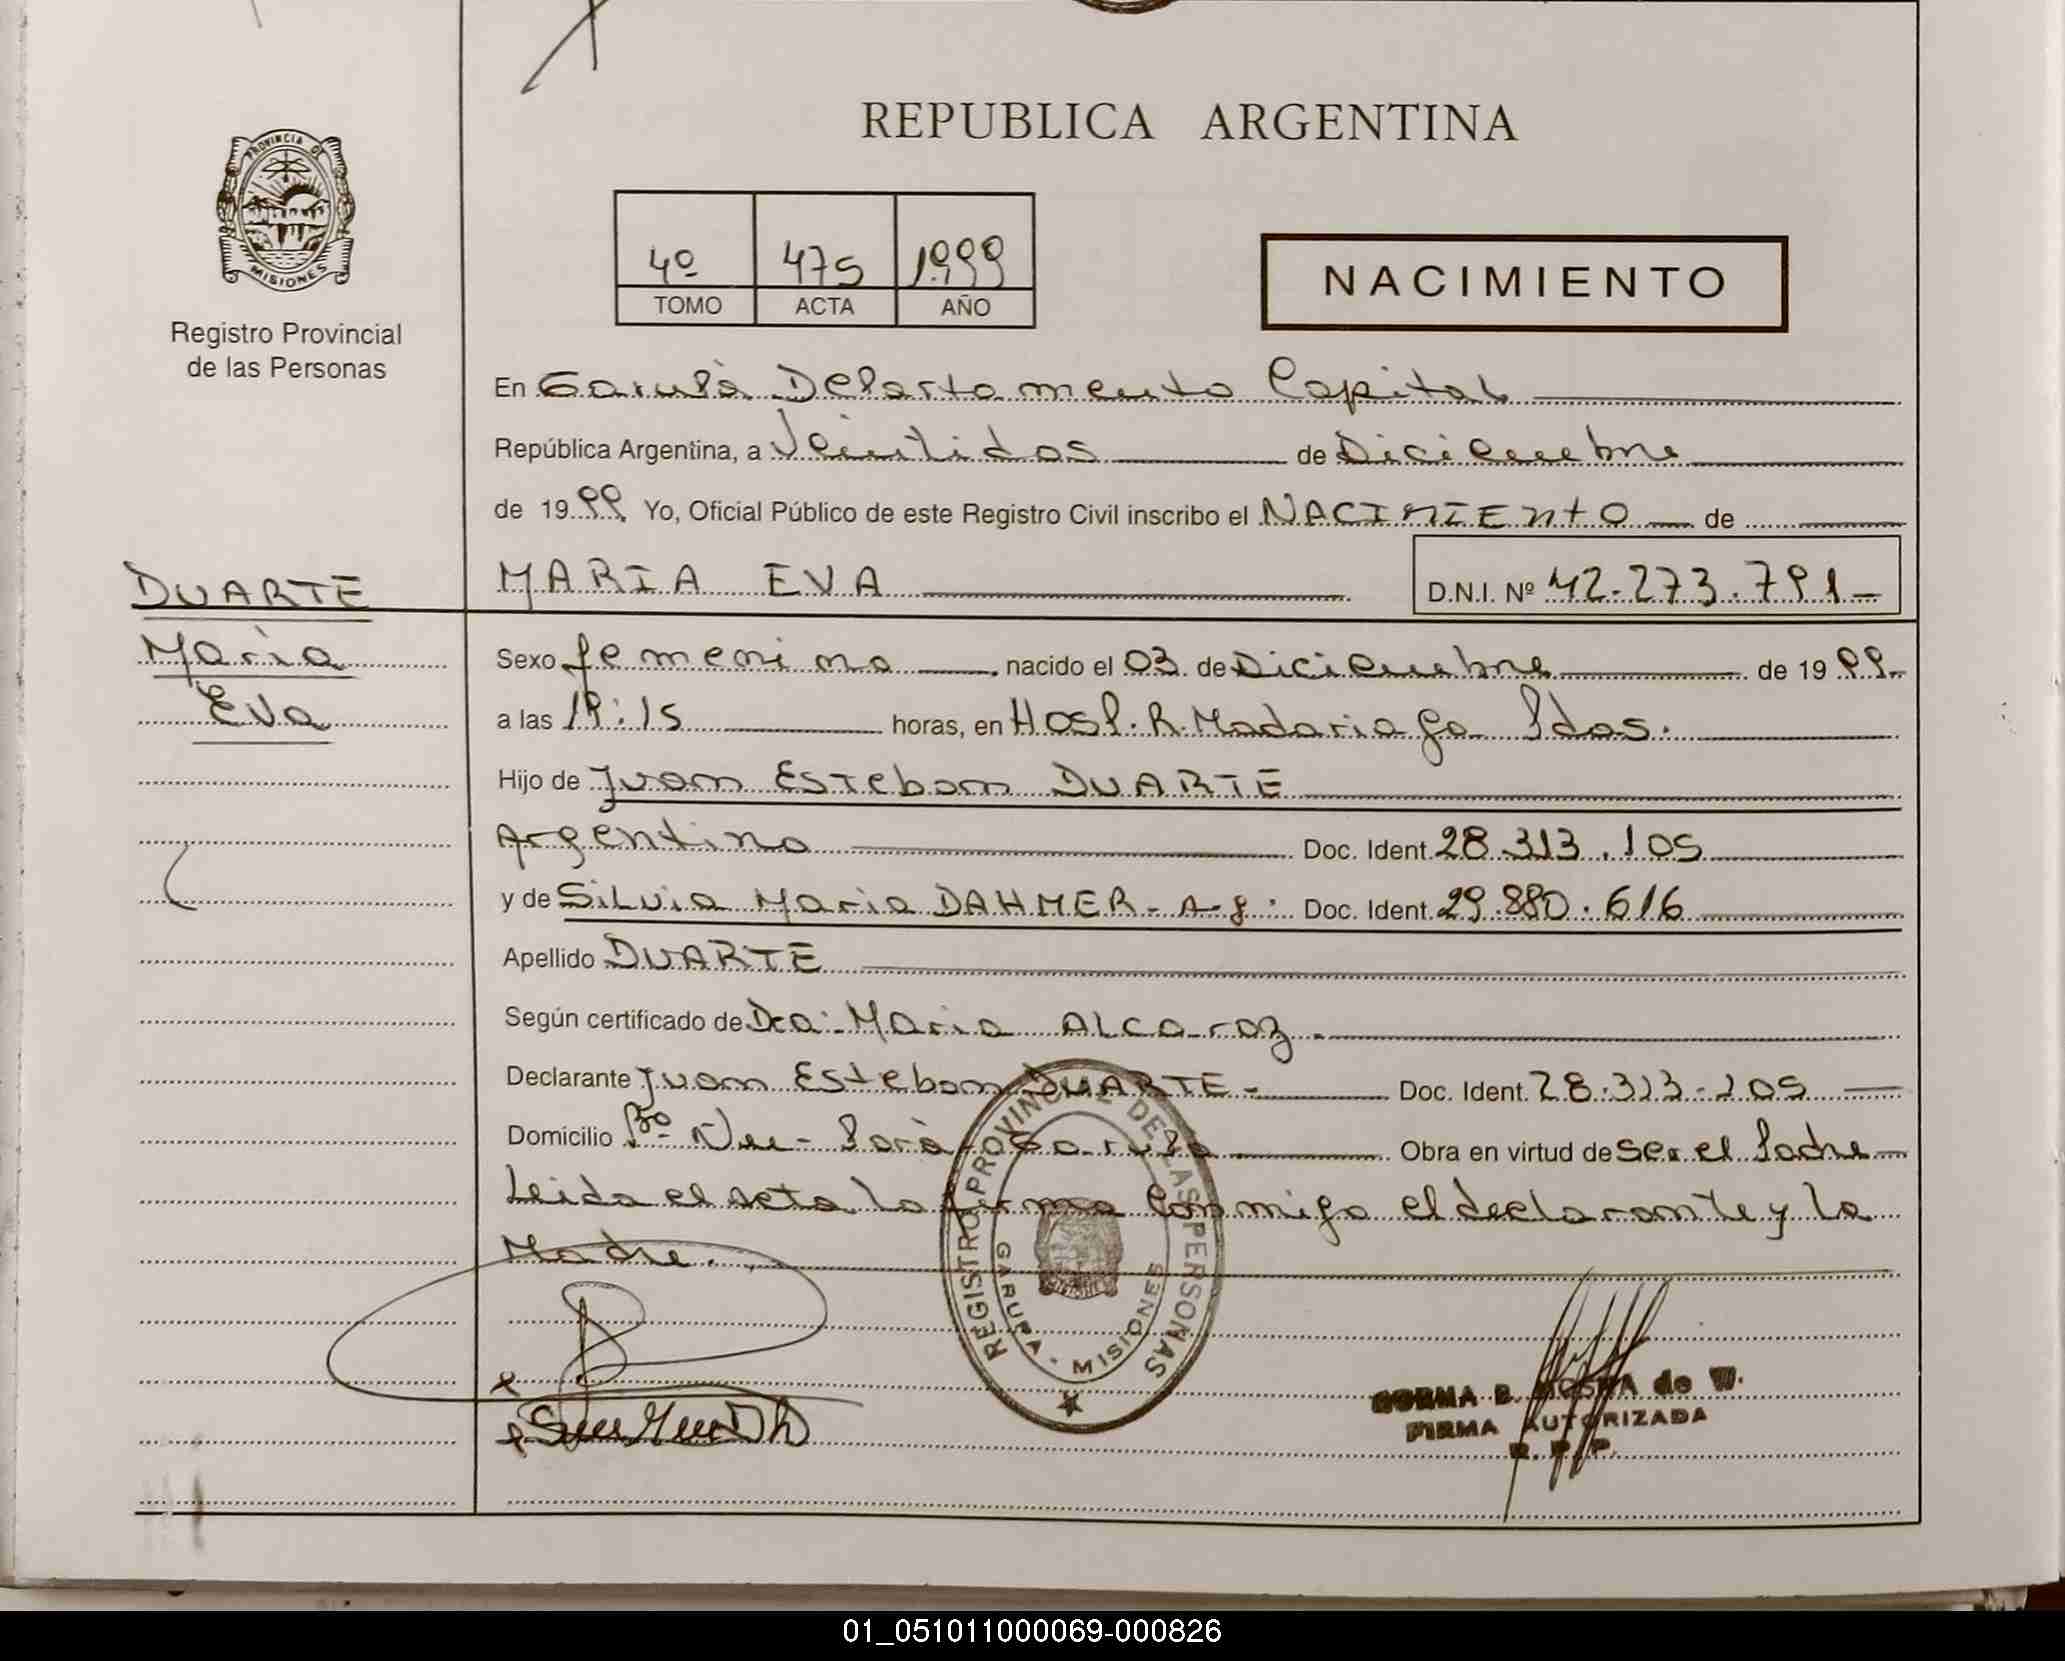 REPUBLICA ARGENTINA
PROVINCIA DE
MISIONES
Registro Provincial
de las Personas
4º 475 1999
TOMO ACTA AÑO
NACIMIENTO
En Garupá Departamento Capital
República Argentina, a Veintidos de Diciembre
de 1999 Yo, Oficial Público de este Registro Civil inscribo el NACIMIENTO de
DUARTE
Maria
Eva
MARIA EVA D.N.I. Nº 42.273.791
Sexo femenino nacido el 03 de Diciembre de 1999
a las 19:15 horas, en Hosp. R. Madariaga Pdas.
Hijo de Juan Esteban DUARTE
Argentino Doc. Ident. 28.313.105
y de Silvia Maria DAHMER - Arg. Doc. Ident. 29.880.616
Apellido DUARTE
Según certificado de Dra. Maria ALCaraz.
Declarante Juan Esteban DUARTE - Doc. Ident. 28.313.105
Domicilio Bº Ñu - Porá - Garupá Obra en virtud de ser el Padre
Leida el acta la firma conmigo el declarante y la
Madre.
REGISTRO PROVINCIAL DE LAS PERSONAS
GARUPA - MISIONES
de W.
FIRMA AUTORIZADA
R. P. P.
01_051011000069-000826